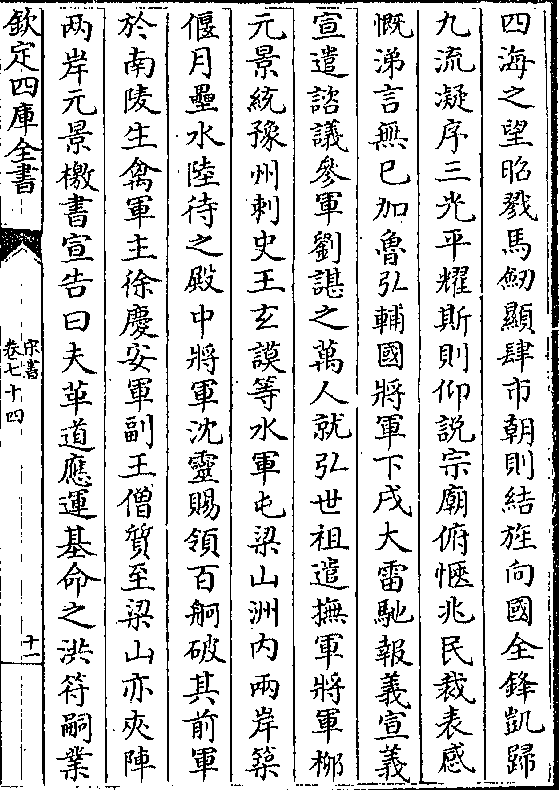 四海之望昭戮馬劒顯肆市朝則結旌向國全鋒凱歸
九流凝序三光平耀斯則仰説宗廟俯愜兆民裁表感
慨涕言無已加魯弘輔國將軍下戌大雷馳報義宣義
宣遣諮議參軍劉諶之萬人就弘世祖遣撫軍將軍栁
元景統豫州刺史王玄謨等水軍屯梁山洲内兩岸築
偃月壘水陸待之殿中將軍沈靈賜領百舸破其前軍
於南陵生禽軍主徐慶安軍副王僧質至梁山亦夾陣
两岸元景檄書宣告曰夫革道應運基命之洪符嗣業
欽定四庫全書
宋書
卷七十四
十一